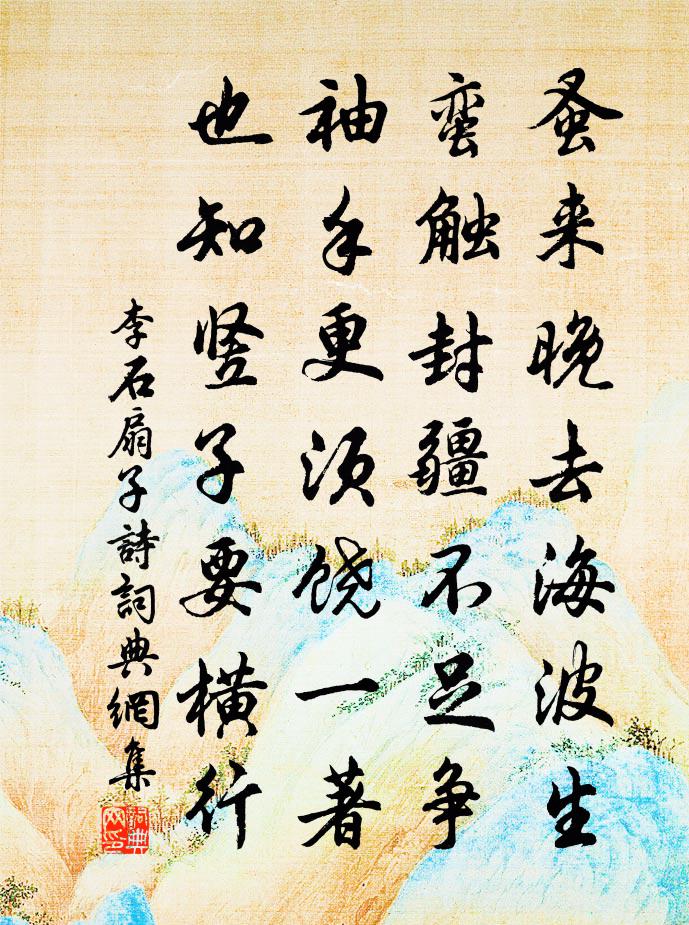 蚤来晚去海波生
蛮触封疆不足争
袖手更须饶一著
也知竖子要横行
李石扇子詩詞典網集
詞典网印